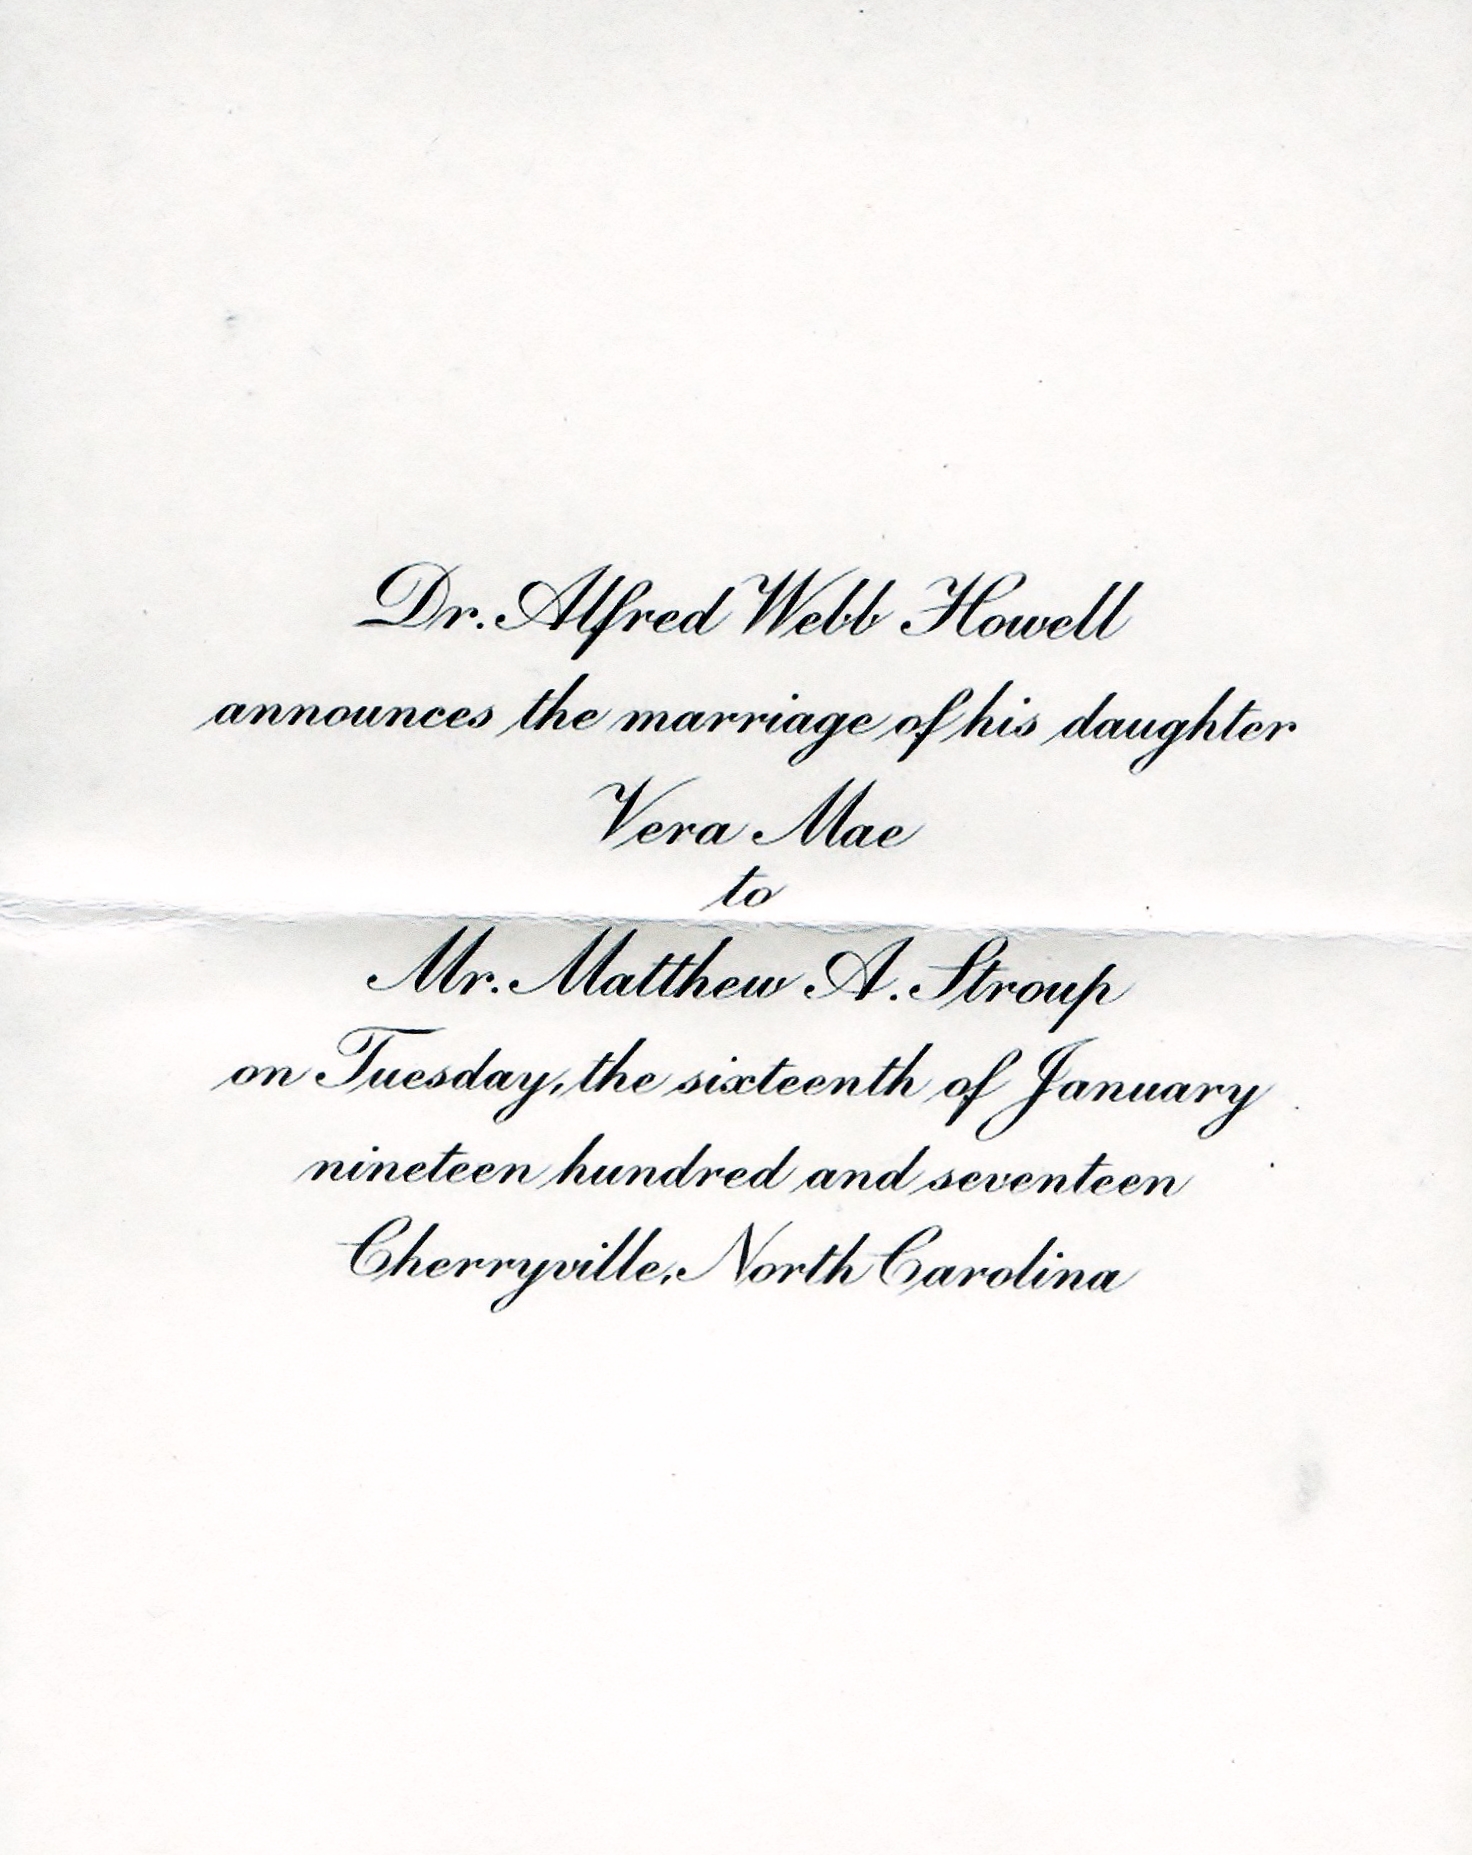 Dr. Alfred Webb Howell
announces the marriage of his daughter
Vera Mae
to
Mr. Matthew A. Stroup
on Tuesday, the sixteenth of January
nineteen hundred and seventeen
Cherryville, North Carolina